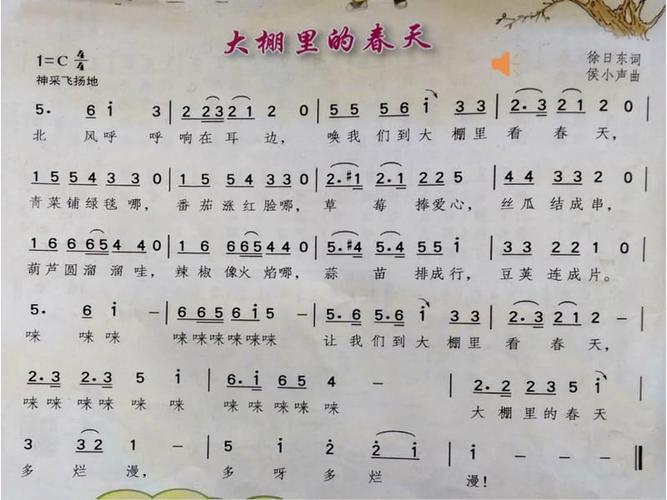 大棚里的春天
1=C 4/4
徐日东词
神采飞扬地
侯小声曲
5. 6 i 3 | 2 2 2 3 2 1 2 0 | 5 5 5 5 6 i 3 3 | 2. 3 2 1 2 0 |
北 风呼 呼 响在耳 边, 唤我们到大棚里 看 春天,
1 5 5 4 3 3 2 0 | 1 5 5 4 3 3 2 0 | 2. #1 2. 1 2 2 5 | 4 4 3 3 2 0 |
青菜铺绿毯哪, 番茄涨红脸哪, 草 莓 捧爱心, 丝瓜 结成串,
1 6 6 6 6 5 4 4 0 | 1 6 6 4 6 5 4 4 0 | 5. #4 5. 4 5 5 i | 2 2 i i 5 0 |
葫芦圆溜 溜哇, 辣椒像火 焰哪, 蒜 苗 排成行, 豆荚 连成片。
5. 6 i | 6 6 5 6 i 5 | 5 5 5 5 6 i 3 3 | 2. 3 2 1 2 - |
咪 咪咪 咪咪咪咪咪咪 让我们到大棚里 看 春天,
2. 3 2. 3 5 i | 6. i 6 5 4 - | 2 2 2 2. 1 2 - |
咪 咪咪 咪 咪 咪 咪 咪咪咪 咪 大棚里的春天
3 3 2 1 - | 5 i 2. 2 i | i - - - ‖
多 烂 漫, 多 呀多 烂 漫!